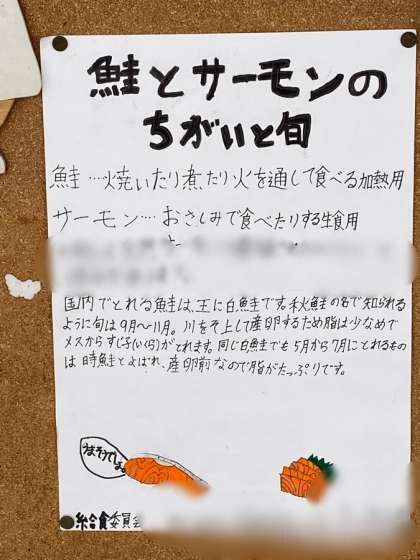 鮭とサーモンの
ちがいと旬
鮭…焼いたり煮たり火を通して食べる加熱用
サーモン…おさしみで食べたりする生食用
国内でとれる鮭は、主に白鮭です。秋鮭の名で知られる
ように旬は9月〜11月。川をそ上して産卵するため脂は少なめで
メスからすじ子(いくら)がとれます。同じ白鮭でも5月から7月にとれるもの
は時鮭とよばれ、産卵前なので脂がたっぷりです。
うまそうでしょ。
給食委員会